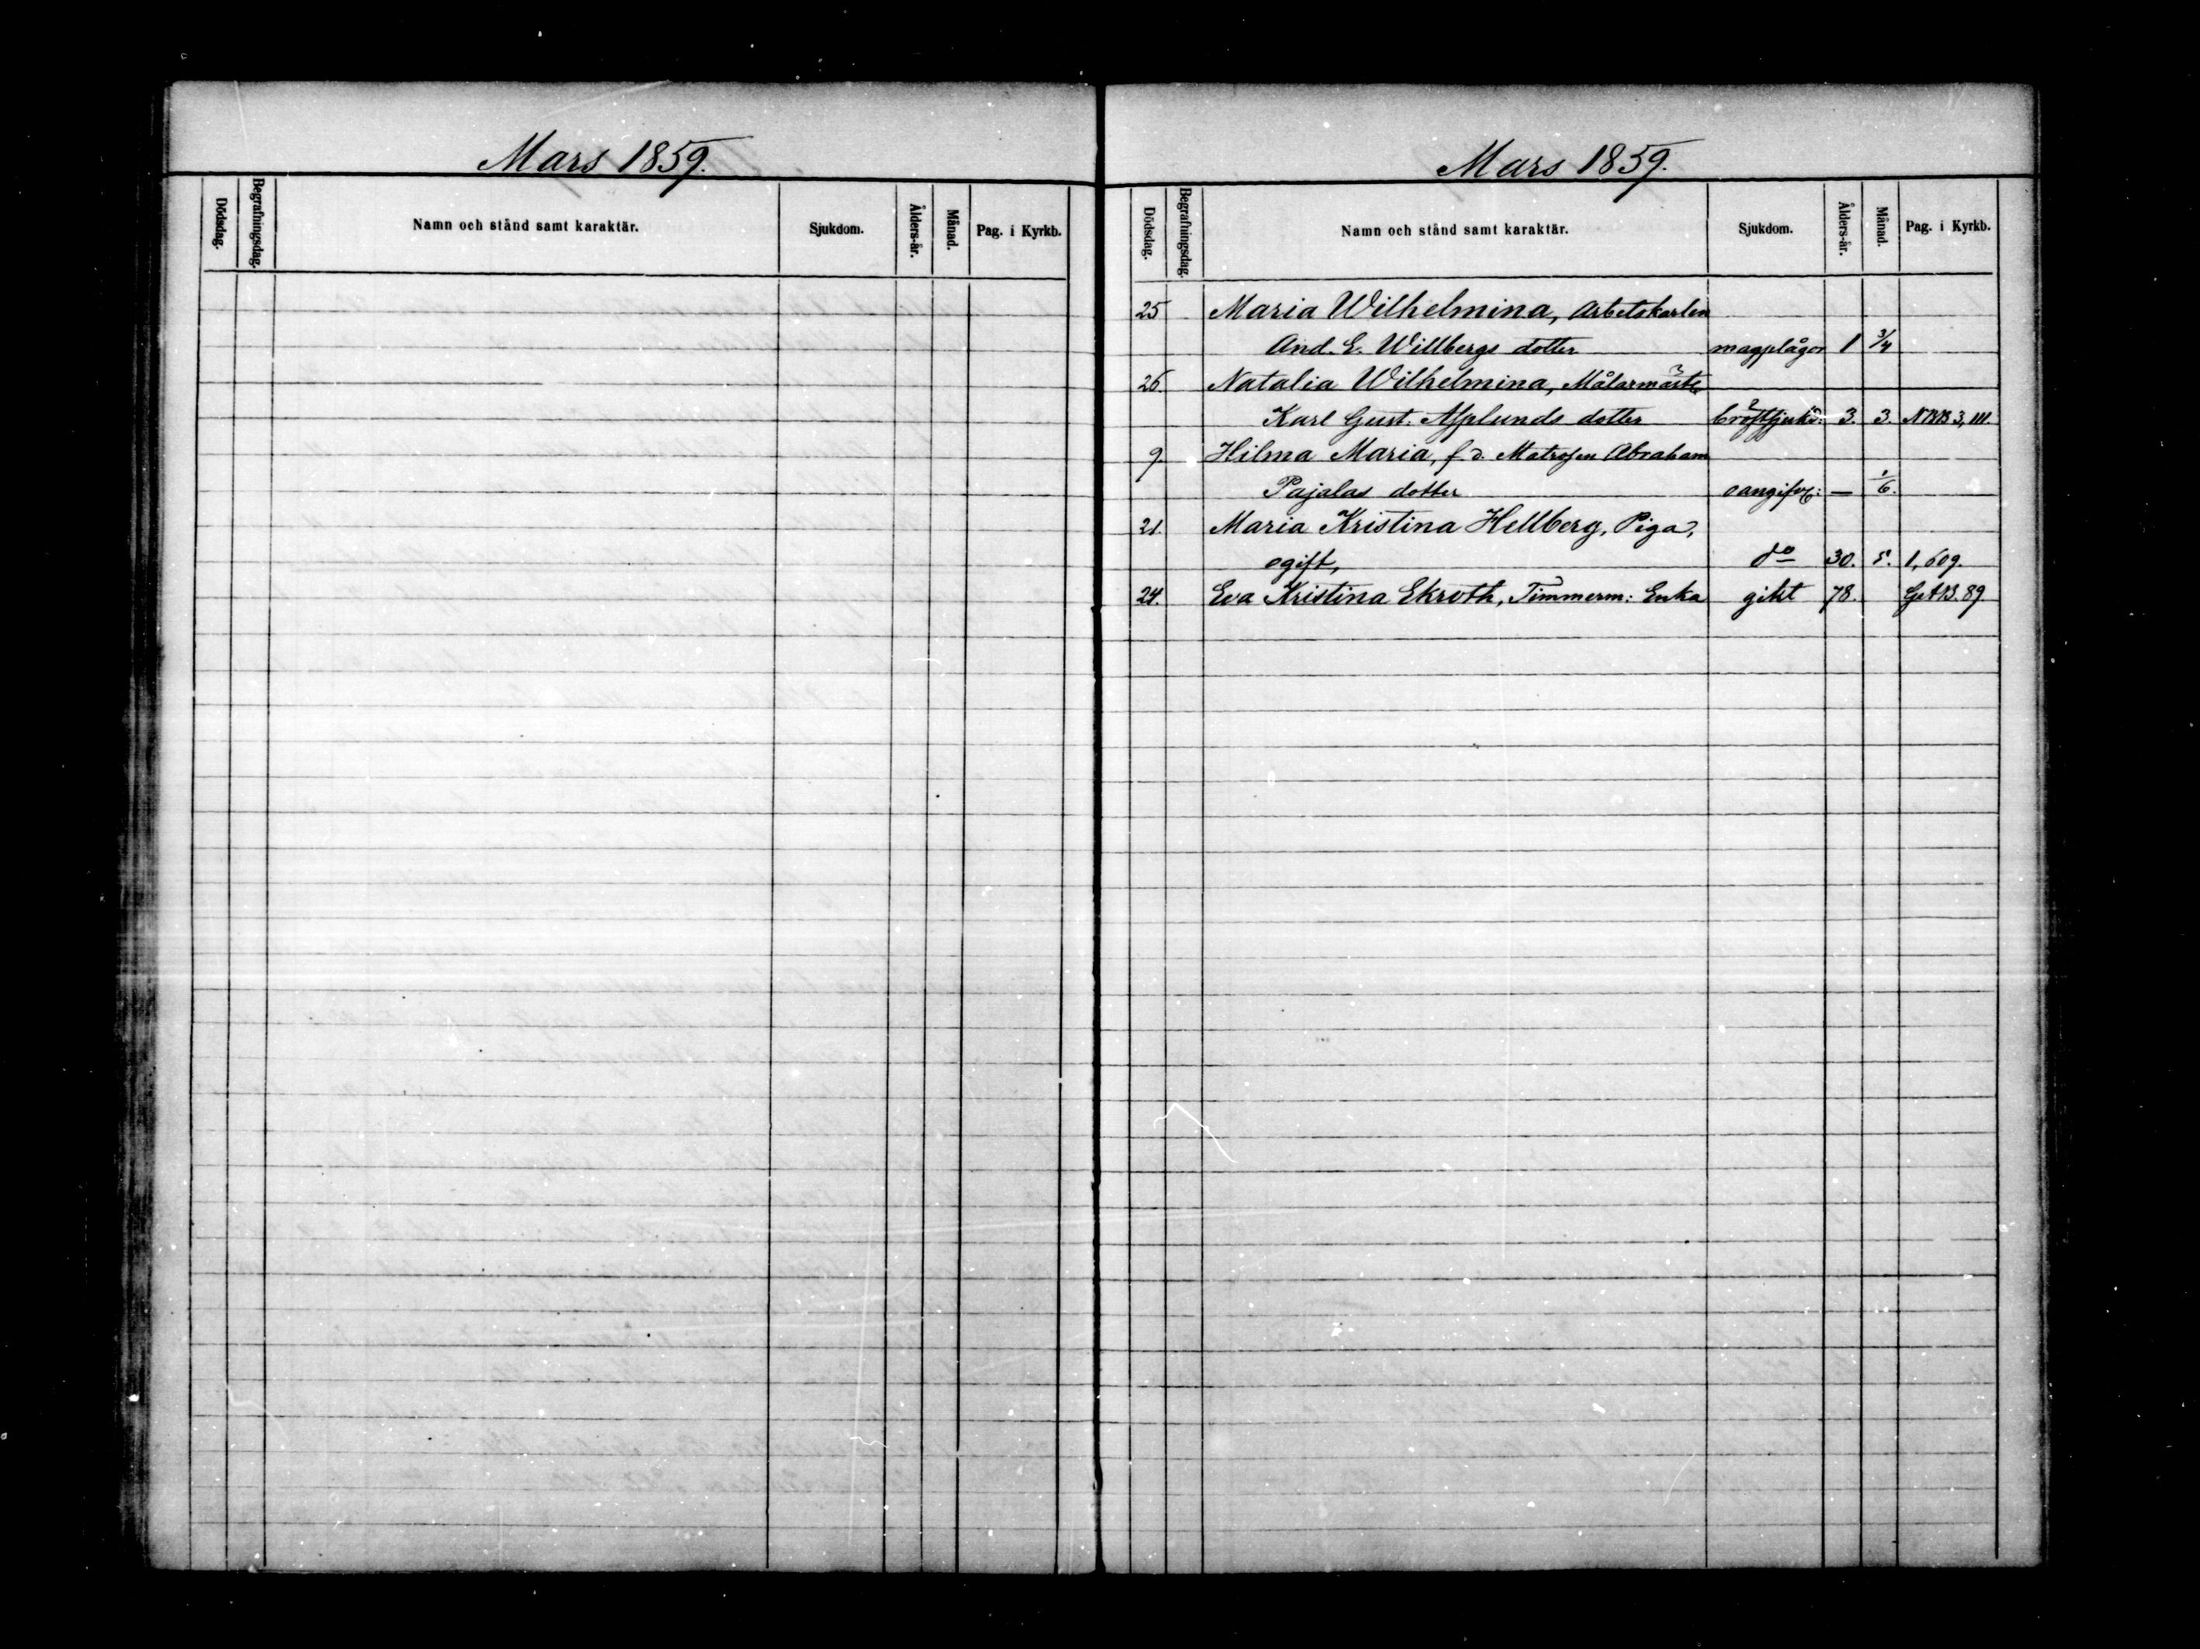 Mars 1859.
Dödsdag. Begrafningsdag. Namn och stånd samt karaktär. Sjukdom. Ålders-år. Månad. Pag. i Kyrkb.
Mars 1859.
Dödsdag. Begrafningsdag. Namn och stånd samt karaktär. Sjukdom. Ålders-år. Månad. Pag. i Kyrkb.
25 Maria Wilhelmina, Arbetskarlen
And. E. Willbergs dotter magplågor 1 3/4
26. Natalia Wilhelmina, Målarmäst:
Karl Gust. Asplunds dotter bröstsjukd: 3. 3. NBB 3, 111.
9. Hilma Maria, f. d. Matrosen Abraham
Pajalas dotter oangifv: — 1/6.
21. Maria Kristina Hellberg, Piga,
ogift, do 30. 5. 1, 609.
24. Eva Kristina Ekroth, Timmerm: Enka gikt 78. 89.